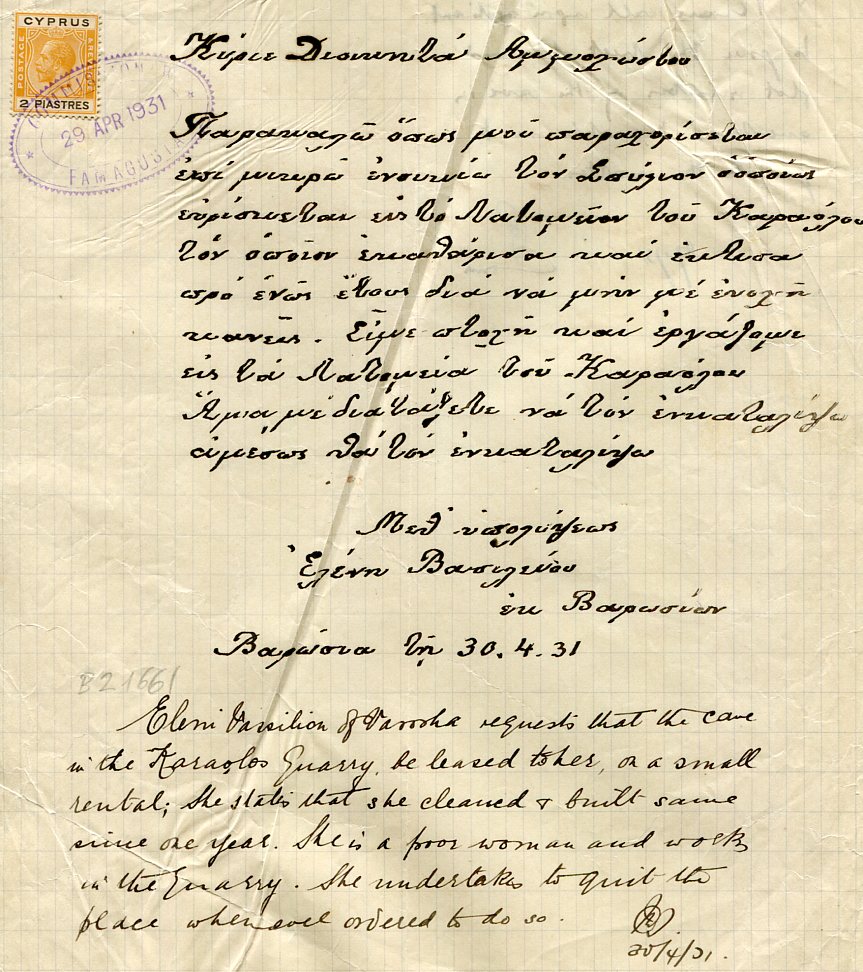 CYPRUS
POSTAGE
REVENUE
2 PIASTRES
29 APR 1931
FAMAGUSTA
Κύριε Διοικητά Αμμοχώστου
Παρακαλῶ ὅπως μοῦ παραχορίσεται
ἐπί μικρῶ ἐνοικίω τόν Σπήλιον ὁ ὁποίως
εὑρίσκεται εἰς τό Λατομεῖον τοῦ Καραόλου
τόν ὁποῖον ἐκαθάρισα καί ἐκτισα
πρό ἑνός ἔτους διά νά μήν μέ ἐνοχῆ
κανείς. Εἶμε πτοχή καί ἐργάζομε
εἰς τά Λατομεία τοῦ Καραόλου
Ἅμα με διατάξετε νά τόν ἐνκαταλίψω
ἀμέσως θά τόν ἐνκαταλίψω
Μεθ' ὑπολύψεως
Ἑλένη Βασιλείου
ἐκ Βαρωσίων
Βαρώσια τῆ 30.4.31
B2 1661
Eleni Vassiliou of Varosha requests that the cave
in the Karaolos Quarry, be leased to her, on a small
rental; She states that she cleaned & built same
since one year. She is a poor woman and works
in the Quarry. She undertakes to quit the
place whenever ordered to do so.
30/4/31.